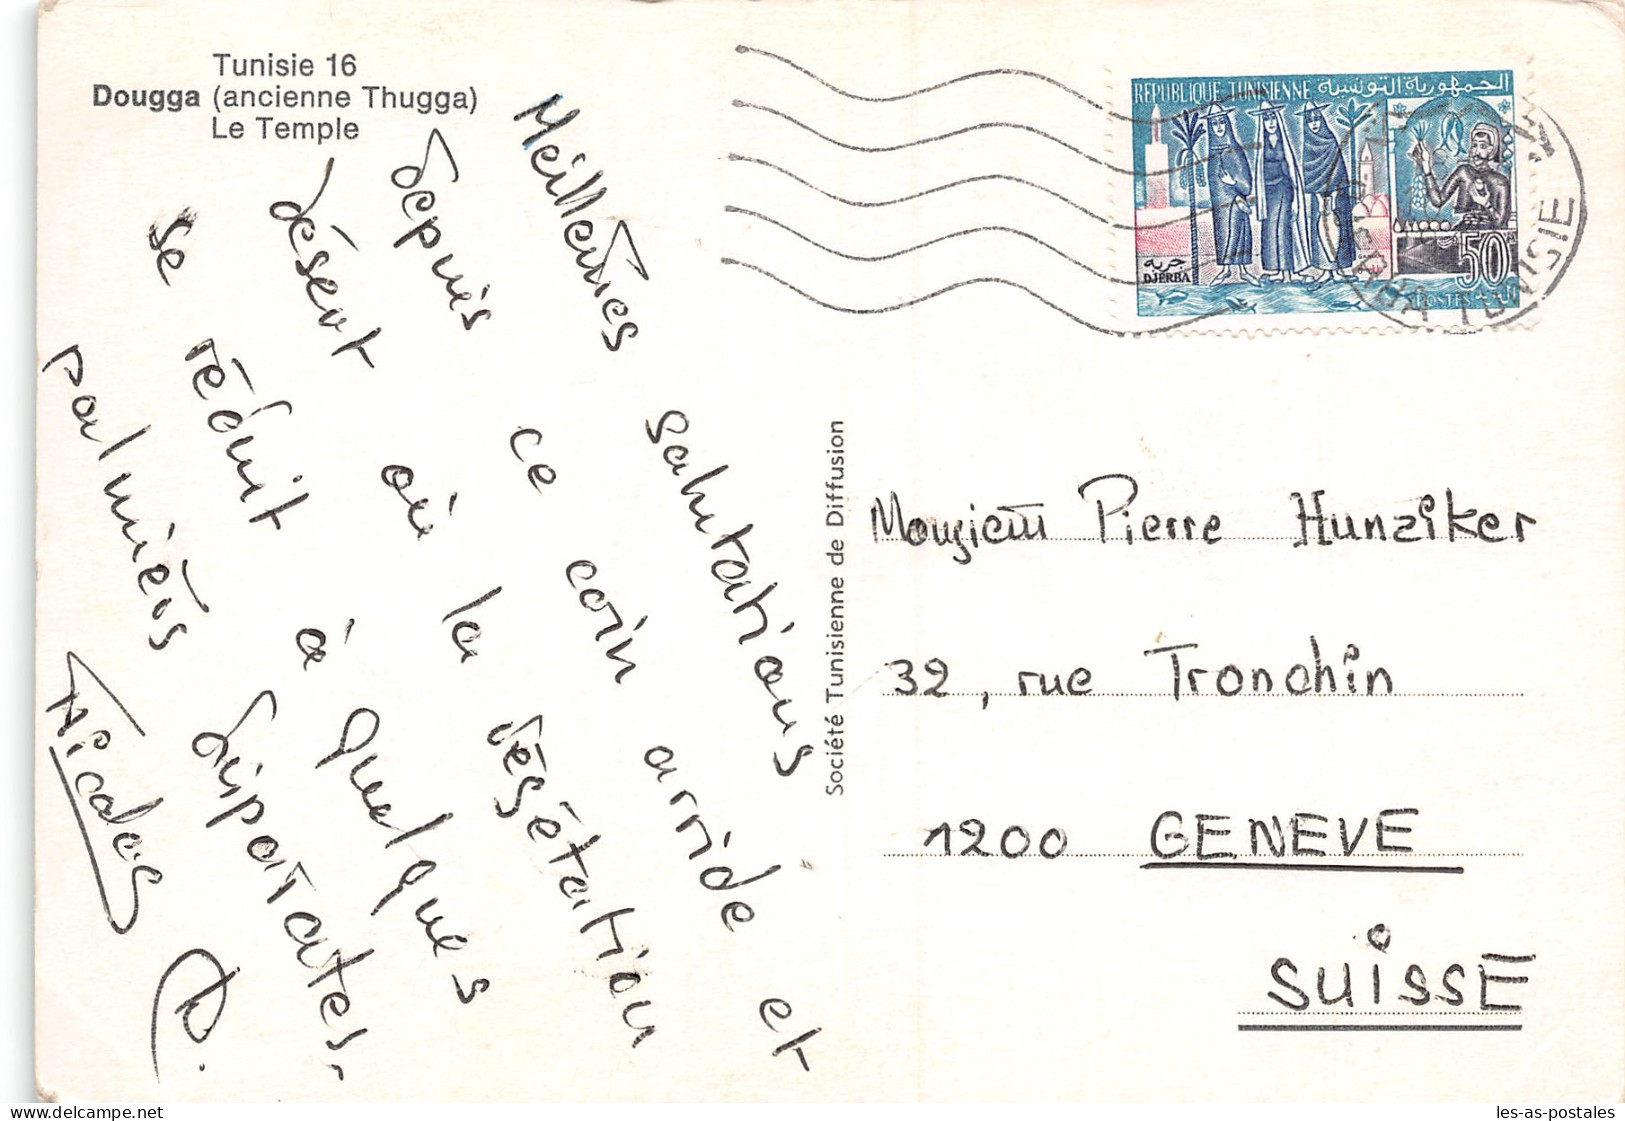 Tunisie 16
Dougga (ancienne Thugga)
Le Temple
Meilleures salutations
depuis ce coin arride et
désert où la végétation
se réduit à quelques
palmiers disparates,
Nicolas
Société Tunisienne de Diffusion
REPUBLIQUE TUNISIENNE الجمهورية التونسية
جربة
DJERBA
50
POSTES
TUNISIE
Monsieur Pierre Hunziker
32, rue Tronchin
1200 GENEVE
SUISSE
delcampe.net
les-as-postales